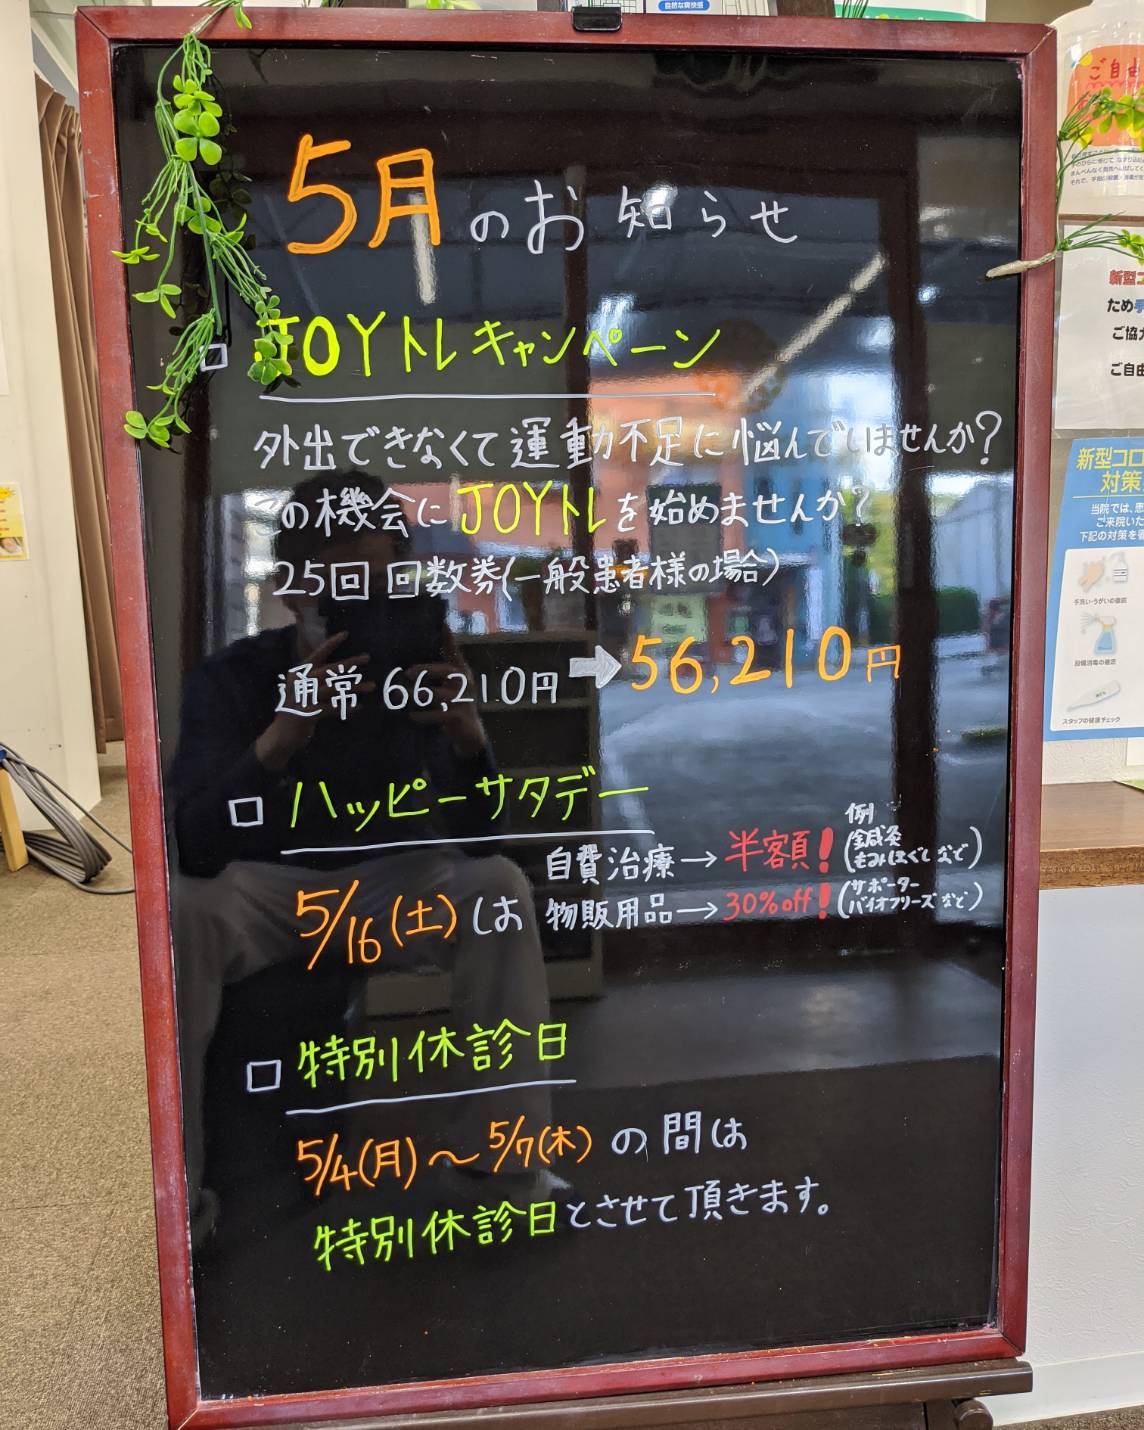 自然な爽快感
5月のお知らせ
□ JOYトレキャンペーン
外出できなくて運動不足に悩んでいませんか?
この機会にJOYトレを始めませんか?
25回 回数券(一般患者様の場合)
通常 66,210円➡56,210円
□ ハッピーサタデー
5/16(土)は
自費治療→半額! 例(鍼灸 もみほぐしなど)
物販用品→30%off! (サポーター バイオフリーズなど)
□ 特別休診日
5/4(月)~5/7(木)の間は
特別休診日とさせて頂きます。
ご自由
新型コ
ため手
ご協力
ご自由
新型コロ
対策
当院では、患
ご来院いた
下記の対策を
手洗い・うがいの徹底
設備消毒の徹底
スタッフの健康チェック